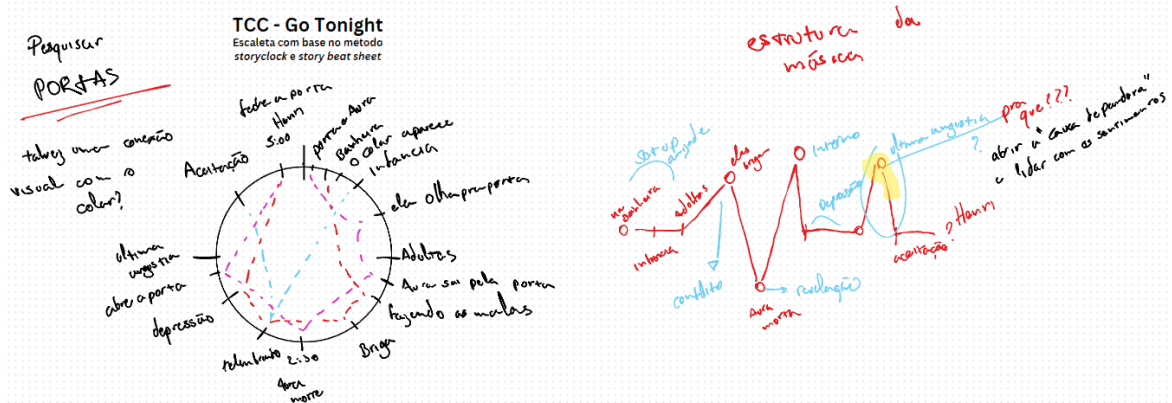 Pesquisar
PORTAS
talvez uma conexão
visual com o
colar?
TCC - Go Tonight
Escaleta com base no metodo
storyclock e story beat sheet
fecha a porta
Henri
5:00
porta e Aura
Banheira
O colar aparece
infancia
ela olha pra porta
Adultas
Aura sai pela porta
fazendo as malas
Briga
2:30
Aura
morre
relembrando
depressão
abre a porta
ultima
angustia
Aceitação
estrutura da
música
na
Banheira
infancia
set up
amizade
adultas
elas
brigam
conflito
Aura
morta
revelação
interno
depressão
ultima angustia
?
pra
que!???
abrir a "caixa de pandora"
e lidar com os sentimentos
aceitação
? Henri